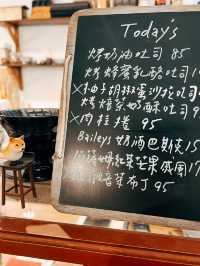 Today's
烤奶油吐司 85
烤蜂蜜乳酪吐司1
×柚子胡椒蛋沙拉吐司
烤焙茶奶酥吐司9
×肉桂捲 95
Baileys奶酒巴斯克15
紅茶芒果戚風17
布丁 95